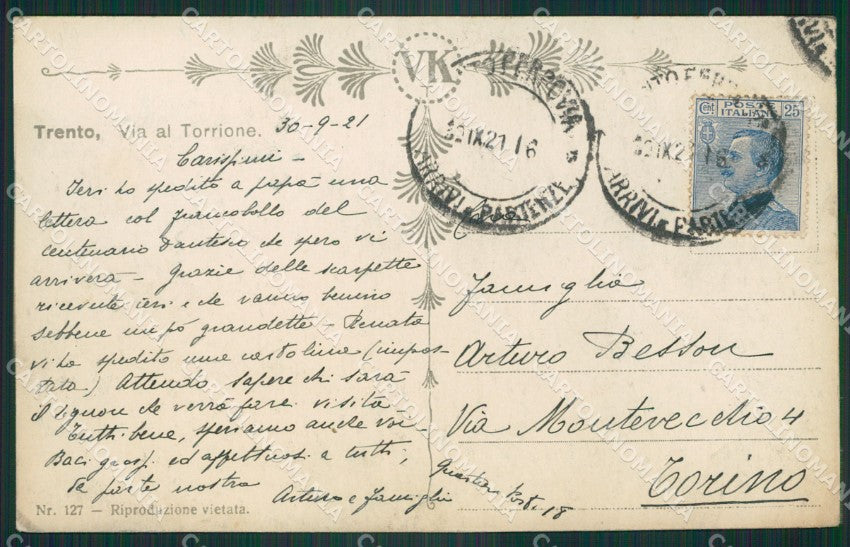 VK
Trento, Via al Torrione. 30-9-21
Carissimi -
Ieri ho spedito a papà una
lettera col francobollo del
centenario dantesco che spero vi
arriverà - Grazie delle scarpette
ricevute ieri e che vanno benino
sebbene un pò grandette - Renata
vi ha spedito una cartolina (impos-
tata) Attendo sapere chi sarà
il signore che verrà fare visita -
Tutti bene, speriamo anche voi -
Baci ed affettuosi a tutti,
da parte nostra
Arturo e famiglia
Nr. 127 — Riproduzione vietata.
FERROVIA
30 IX 21 16
ARRIVI e PARTENZE
FERR
IX 21 16
ARRIVI e PARTENZE
POSTE
ITALIANE
Cent 25
Famiglia
Arturo Besson
Via Montevecchio 4
Torino
18
CARTOLINOMANIA